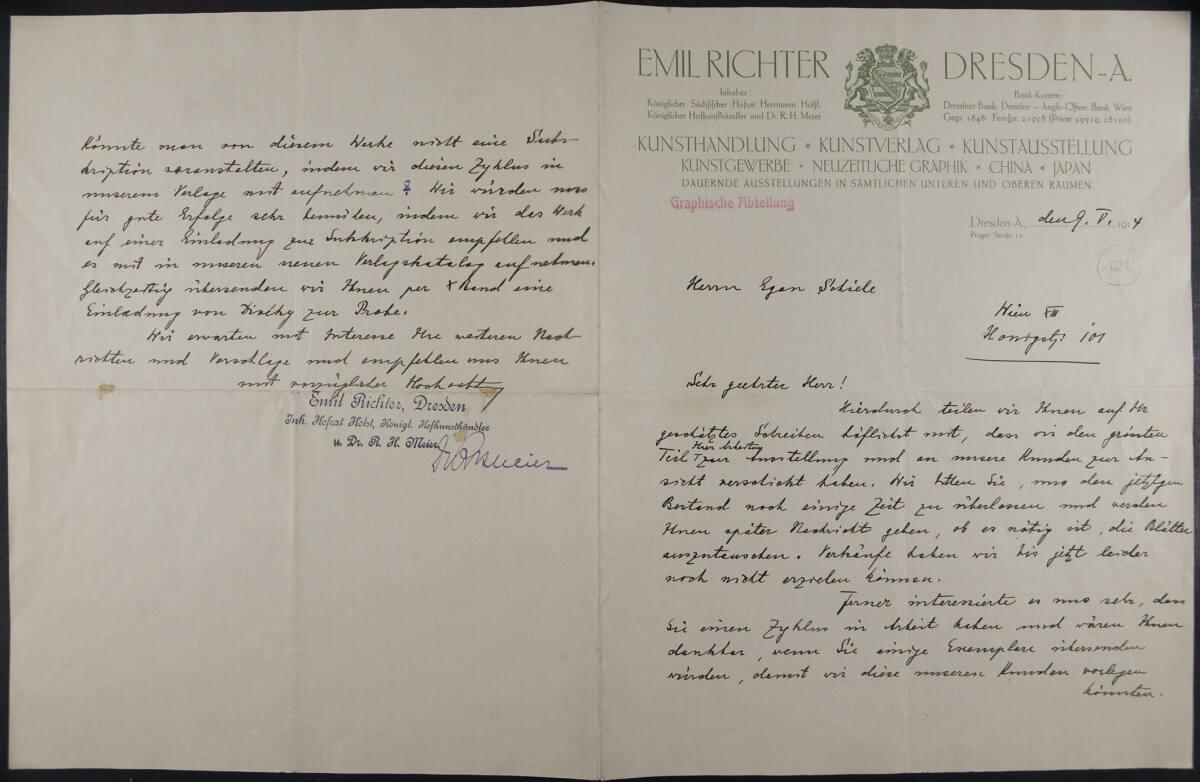 EMIL RICHTER DRESDEN-A.
Inhaber:
Königlicher Sächsischer Hofrat Herrmann Holst,
Königlicher Hofkunsthändler und Dr. R. H. Meier
Bank-Konten:
Dresdner Bank, Dresden – Anglo-Österr. Bank, Wien
Gegr. 1848. Fernspr. 21958 (Privat 29519, 28150).
KUNSTHANDLUNG * KUNSTVERLAG * KUNSTAUSSTELLUNG
KUNSTGEWERBE * NEUZEITLICHE GRAPHIK * CHINA * JAPAN
DAUERNDE AUSSTELLUNGEN IN SÄMTLICHEN UNTEREN UND OBEREN RÄUMEN
Graphische Abteilung
Dresden-A., den 9. V. 1914
Prager Straße 13.
Herrn Egon Schiele
Wien XIII
101
Sehr geehrter Herr!
Hierdurch teilen wir Ihnen auf Ihr
geschätztes Schreiben höflichst mit, dass wir den grössten
Teil Ihrer Arbeiten zur Ausstellung und an unsere Kunden zur An-
sicht verschickt haben. Wir bitten Sie, uns den jetzigen
Bestand noch einige Zeit zu überlassen und werden
Ihnen später Nachricht geben, ob es nötig ist, die Blätter
auszutauschen. Verkäufe haben wir bis jetzt leider
noch nicht erzielen können.
Ferner interessierte es uns sehr, dass
Sie einen Zyklus in Arbeit haben und wären Ihnen
dankbar, wenn Sie einige Exemplare übersenden
würden, damit wir diese unseren Kunden vorlegen
könnten.
Könnte man von diesem Werke nicht eine Subs-
kription veranstalten, indem wir diesen Zyklus in
unserem Verlage mit aufnehmen? Wir würden uns
für gute Erfolge sehr bemühen, indem wir das Werk
auf einer Einladung zur Subskription empfehlen und
es mit in unseren neuen Verlagskatalog aufnehmen.
Gleichzeitig übersenden wir Ihnen per X Band eine
Einladung von zur Probe.
Wir erwarten mit Interesse Ihre weiteren Nach-
richten und Vorschläge und empfehlen uns Ihnen
mit vorzüglicher Hochacht
Emil Richter, Dresden
Inh. Hofrat Holst, Königl. Hofkunsthändler
u. Dr. R. H. Meier
Dr RHMeier